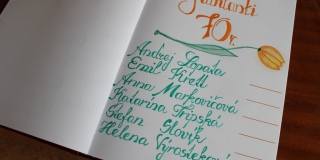 Jubilanti
70 r.
Andrej Lopata
Emil Kretl
Anna Markovičová
Katarína Tripská
Štefan Slovík
Helena Vyrosteková